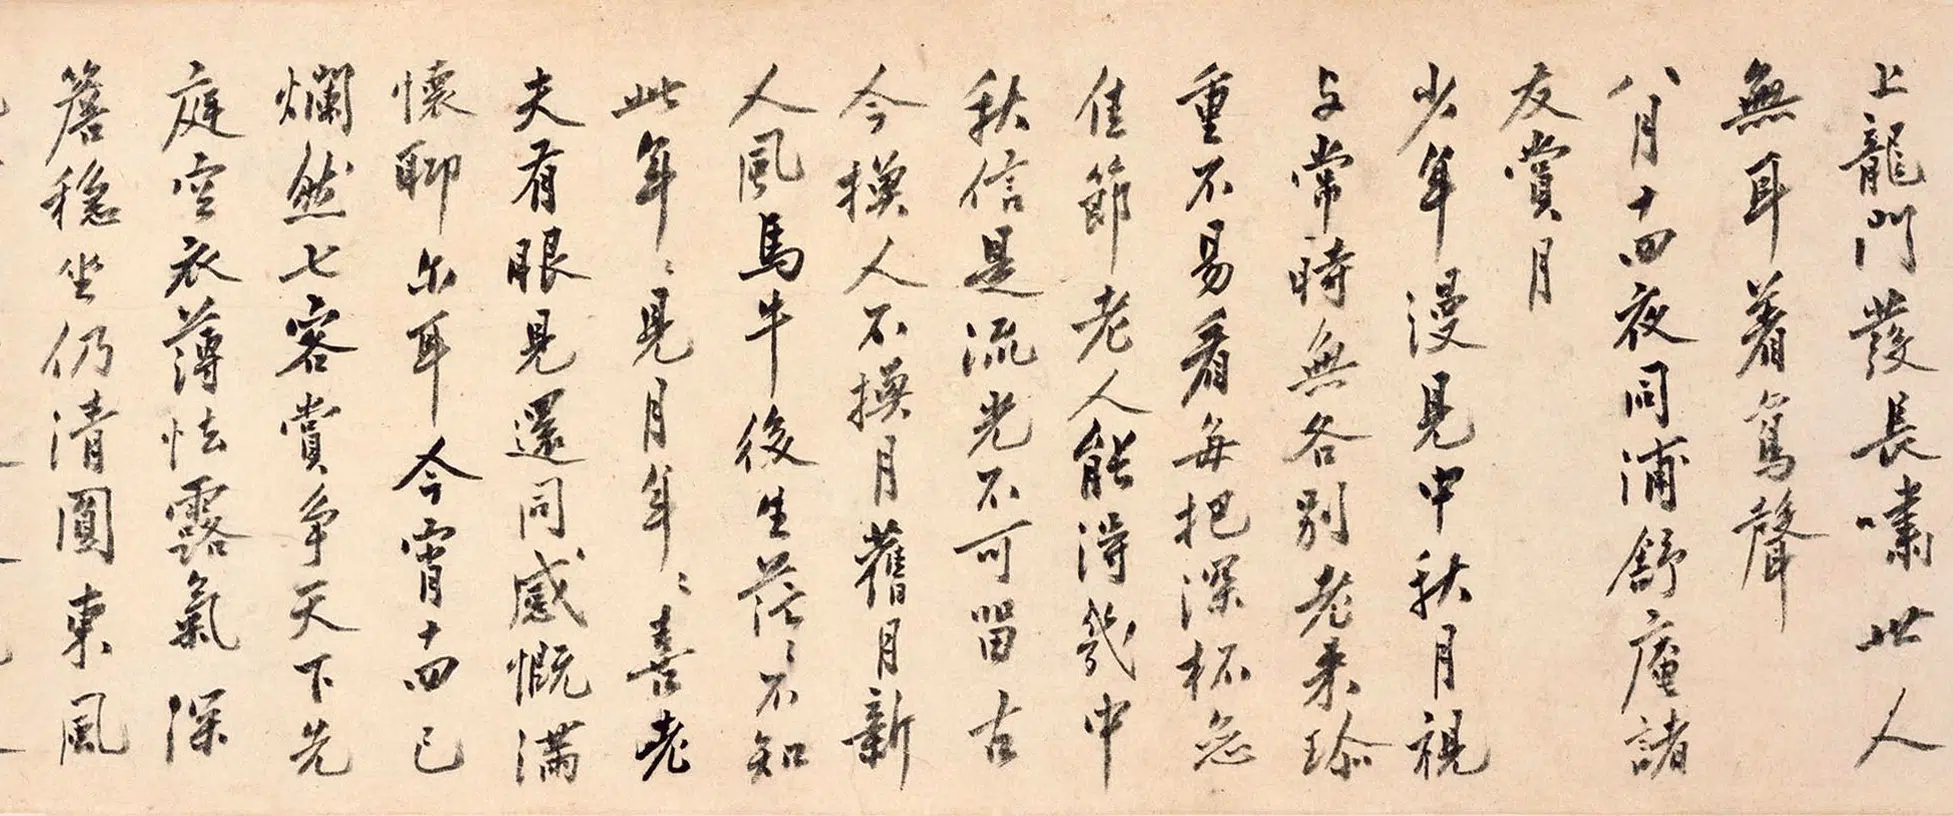 上龍門發長嘯世人
無耳著鸞聲
八月十四夜同浦舒庵諸
友賞月
少年漫見中秋月視
与常時無各別老来珎
重不易看每把深杯怨
佳節老人能得幾中
秋信是流光不可留古
今換人不換月舊月新
人風馬牛後生茫〻不知
此年年〻見月年〻喜老
夫有眼見還同感慨滿
懷聊尓耳今宵十四已
爛然七客賞争天下先
庭空衣薄怯露氣深
簷穏坐仍清圓東風